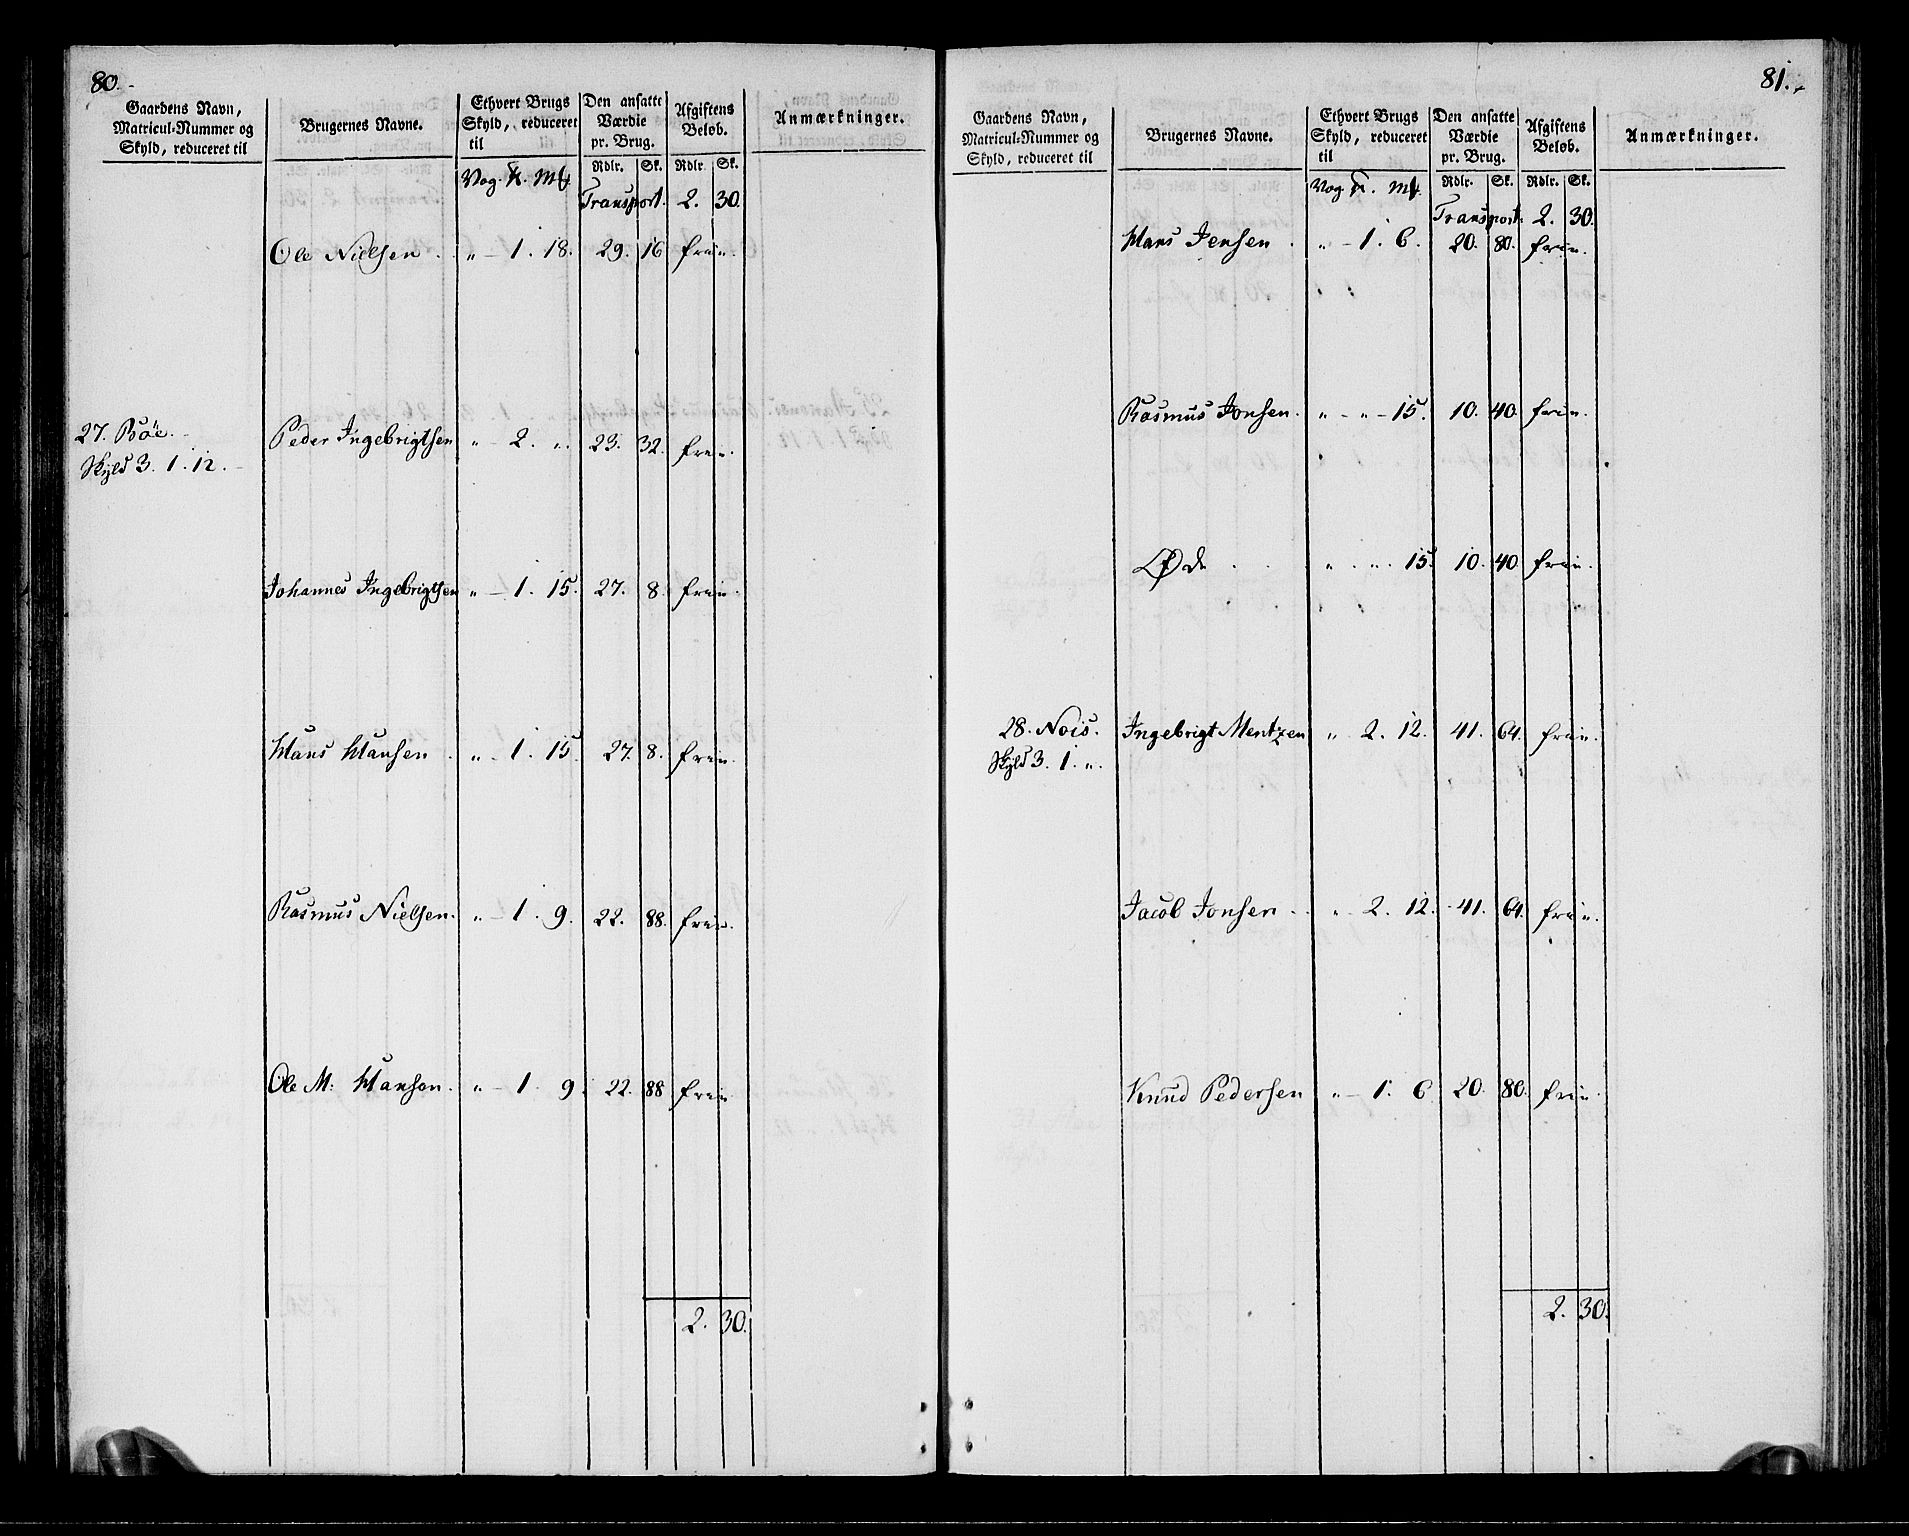 80.
Gaardens Navn, Matricul-Nummer og Skyld, reduceret til
Brugernes Navne.
Ethvert Brugs Skyld, reduceret til
Den ansatte Værdie pr. Brug.
Afgiftens Beløb.
Anmærkninger.
Rdlr. Sk. Rdlr Sk.
Transport. 2. 30.
Ole Nielsen. „ – 1. 18. 29. 16 frie.
27. Bøe. Peder Ingebrigtsen „ – 2. „. 23. 32. frie.
Skyld 3. 1. 12.
Johannes Ingebrigtsen „ – 1. 15. 27. 8. frie.
Hans Hansen. „ – 1. 15. 27. 8. frie.
Rasmus Nielsen. „ – 1. 9. 22. 88. frie.
Ole M: Hansen. „ – 1. 9. 22. 88 frie
2. 30.
81.
Gaardens Navn, Matricul-Nummer og Skyld, reduceret til
Brugernes Navne.
Ethvert Brugs Skyld, reduceret til
Den ansatte Værdie pr. Brug.
Afgiftens Beløb.
Anmærkninger.
Rdlr. Sk. Rdlr. Sk.
Transport. 2. 30.
Hans Jensen. „ – 1. 6. 20. 80. frie.
Rasmus Jonsen. „ – „ – 15. 10. 40. frie.
Øde . . „ . „. 15. 10. 40. frie.
28. Nois. Ingebrigt Mentzen „ 2. 12. 41. 64. frie.
Skyld 3. 1. „.
Jacob Jonsen . . „ 2. 12. 41. 64. frie.
Knud Pedersen „ – 1. 6 20. 80. frie.
2. 30.